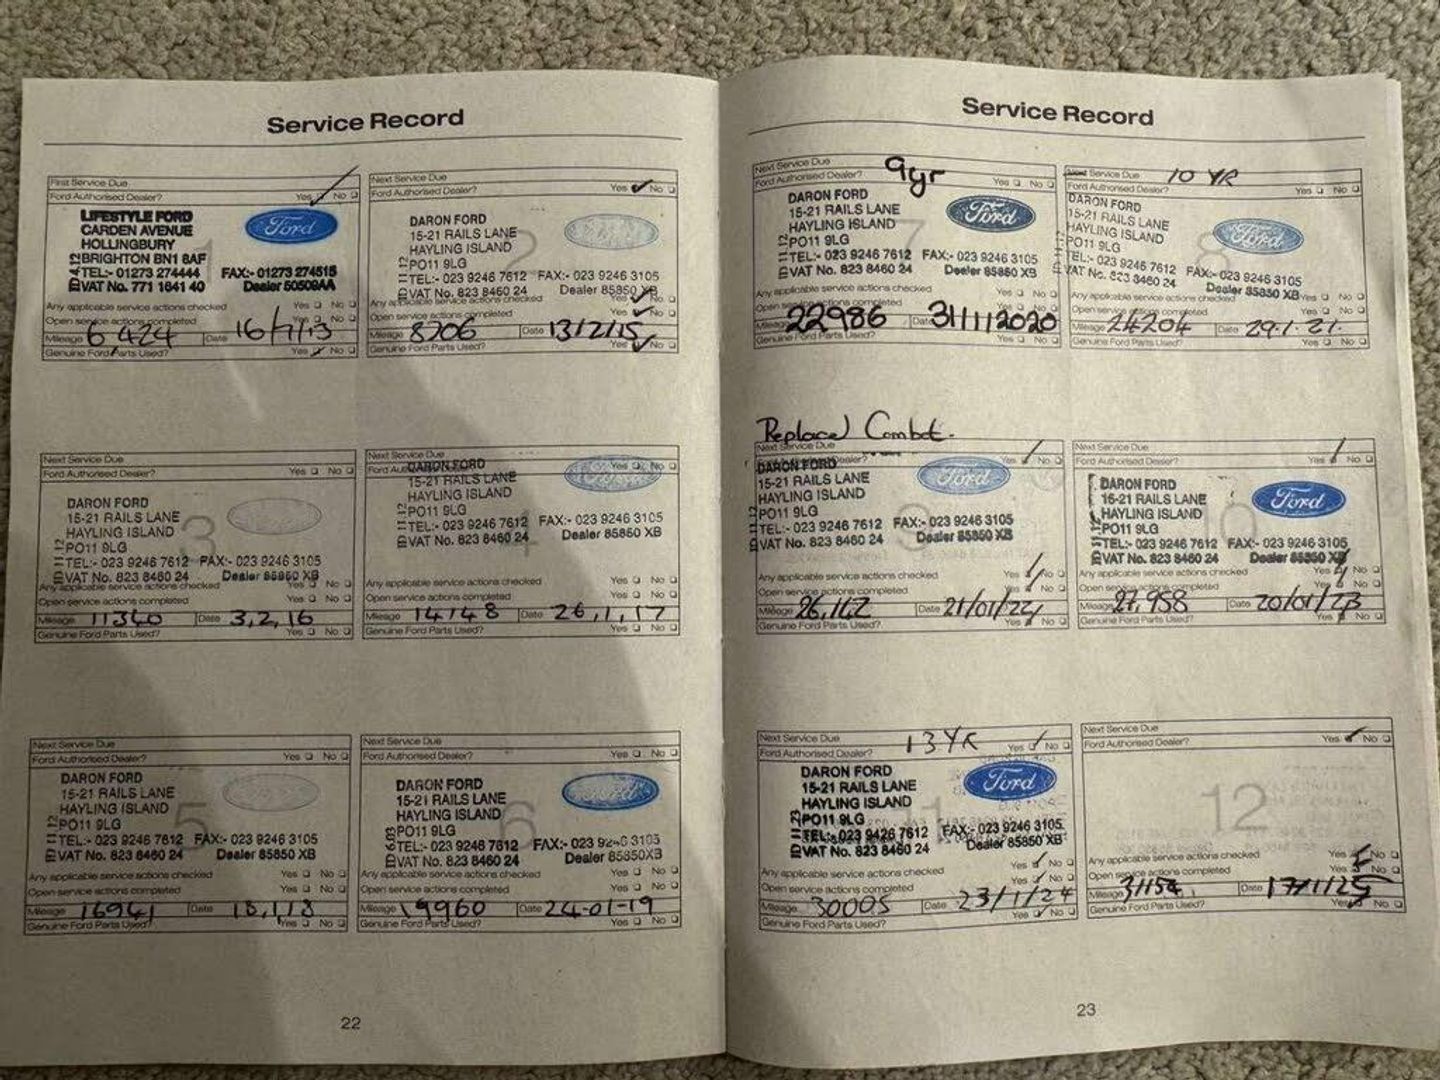 Service Record
First Service Due
Ford Authorised Dealer? Yes No
LIFESTYLE FORD
CARDEN AVENUE
HOLLINGBURY
BRIGHTON BN1 8AF
TEL:- 01273 274444 FAX:- 01273 274515
VAT No. 771 1641 40 Dealer 50509AA
Ford
1
Any applicable service actions checked Yes No
Open service actions completed
Mileage 6424 Date 16/7/13
Genuine Ford Parts Used? Yes No
Next Service Due
Ford Authorised Dealer? Yes No
DARON FORD
15-21 RAILS LANE
HAYLING ISLAND
PO11 9LG
TEL:- 023 9246 7612 FAX:- 023 9246 3105
VAT No. 823 8460 24 Dealer 85850 XB
2
Any applicable service actions checked Yes No
Open service actions completed Yes No
Mileage 8206 Date 13/2/15
Genuine Ford Parts Used? Yes No
Next Service Due
Ford Authorised Dealer? Yes No
DARON FORD
15-21 RAILS LANE
HAYLING ISLAND
PO11 9LG
TEL:- 023 9246 7612 FAX:- 023 9246 3105
VAT No. 823 8460 24 Dealer 85850 XB
3
Any applicable service actions checked Yes No
Open service actions completed Yes No
Mileage 11340 Date 3,2,16
Genuine Ford Parts Used? Yes No
Next Service Due
Ford Authorised Dealer? Yes No
DARON FORD
15-21 RAILS LANE
HAYLING ISLAND
PO11 9LG
TEL:- 023 9246 7612 FAX:- 023 9246 3105
VAT No. 823 8460 24 Dealer 85850 XB
Ford
4
Any applicable service actions checked Yes No
Open service actions completed Yes No
Mileage 14148 Date 26,1,17
Genuine Ford Parts Used? Yes No
Next Service Due
Ford Authorised Dealer? Yes No
DARON FORD
15-21 RAILS LANE
HAYLING ISLAND
PO11 9LG
TEL:- 023 9246 7612 FAX:- 023 9246 3105
VAT No. 823 8460 24 Dealer 85850 XB
5
Any applicable service actions checked Yes No
Open service actions completed Yes No
Mileage 16941 Date 18,1,18
Genuine Ford Parts Used? Yes No
Next Service Due
Ford Authorised Dealer? Yes No
DARON FORD
15-21 RAILS LANE
HAYLING ISLAND
PO11 9LG
TEL:- 023 9246 7612 FAX:- 023 9246 3105
VAT No. 823 8460 24 Dealer 85850XB
Ford
6
Any applicable service actions checked Yes No
Open service actions completed Yes No
Mileage 19960 Date 24-01-19
Genuine Ford Parts Used? Yes No
22
Service Record
Next Service Due 9yr
Ford Authorised Dealer? Yes No
DARON FORD
15-21 RAILS LANE
HAYLING ISLAND
PO11 9LG
TEL:- 023 9246 7612 FAX:- 023 9246 3105
VAT No. 823 8460 24 Dealer 85850 XB
Ford
7
Any applicable service actions checked Yes No
Open service actions completed Yes No
Mileage 22986 Date 31/1/2020
Genuine Ford Parts Used? Yes No
Next Service Due 10 YR
Ford Authorised Dealer? Yes No
DARON FORD
15-21 RAILS LANE
HAYLING ISLAND
PO11 9LG
TEL:- 023 9246 7612 FAX:- 023 9246 3105
VAT No. 823 8460 24 Dealer 85850 XB
Ford
8
Any applicable service actions checked Yes No
Open service actions completed Yes No
Mileage 24204 Date 29.1.21.
Genuine Ford Parts Used? Yes No
Replaced Combat.
Next Service Due
Ford Authorised Dealer? Yes No
DARON FORD
15-21 RAILS LANE
HAYLING ISLAND
PO11 9LG
TEL:- 023 9246 7612 FAX:- 023 9246 3105
VAT No. 823 8460 24 Dealer 85850 XB
Ford
9
Any applicable service actions checked Yes No
Open service actions completed Yes No
Mileage 26,142 Date 21/01/22
Genuine Ford Parts Used? Yes No
Next Service Due
Ford Authorised Dealer? Yes No
DARON FORD
15-21 RAILS LANE
HAYLING ISLAND
PO11 9LG
TEL:- 023 9246 7612 FAX:- 023 9246 3105
VAT No. 823 8460 24 Dealer 85850 XB
Ford
10
Any applicable service actions checked Yes No
Open service actions completed Yes No
Mileage 27,958 Date 20/01/23
Genuine Ford Parts Used? Yes No
Next Service Due 13YR
Ford Authorised Dealer? Yes No
DARON FORD
15-21 RAILS LANE
HAYLING ISLAND
PO11 9LG
TEL:- 023 9426 7612 FAX:- 023 9246 3105
VAT No. 823 8460 24 Dealer 85850 XB
Ford
Any applicable service actions checked Yes No
Open service actions completed Yes No
Mileage 30005 Date 23/1/24
Genuine Ford Parts Used? Yes No
Next Service Due
Ford Authorised Dealer? Yes No
12
Any applicable service actions checked Yes No
Open service actions completed Yes No
Mileage 31154 Date 17/1/25
Genuine Ford Parts Used? Yes No
23